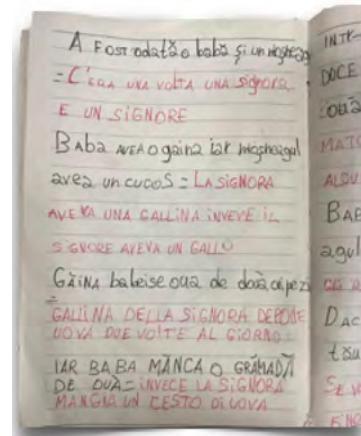 A FOST odată o babă și un moșneag
= C'ERA UNA VOLTA UNA signora
E UN SIGNORE
BABA AVEA O gaina iar mosneagul
avea un cucoș = LA SIGNORA
AVEVA UNA GALLINA INVEVE IL
SIGNORE AVEVA UN GALLO
GĂINA babei se oua de două ori pe zi
=
GALLINA DELLA SIGNORA DEPONE
UOVA DUE VOLTE AL GIORNO
IAR BABA MÂNCA O GRĂMADĂ
DE OUĂ = INVECE LA SIGNORA
MANGIA UN CESTO DI UOVA
DOCE